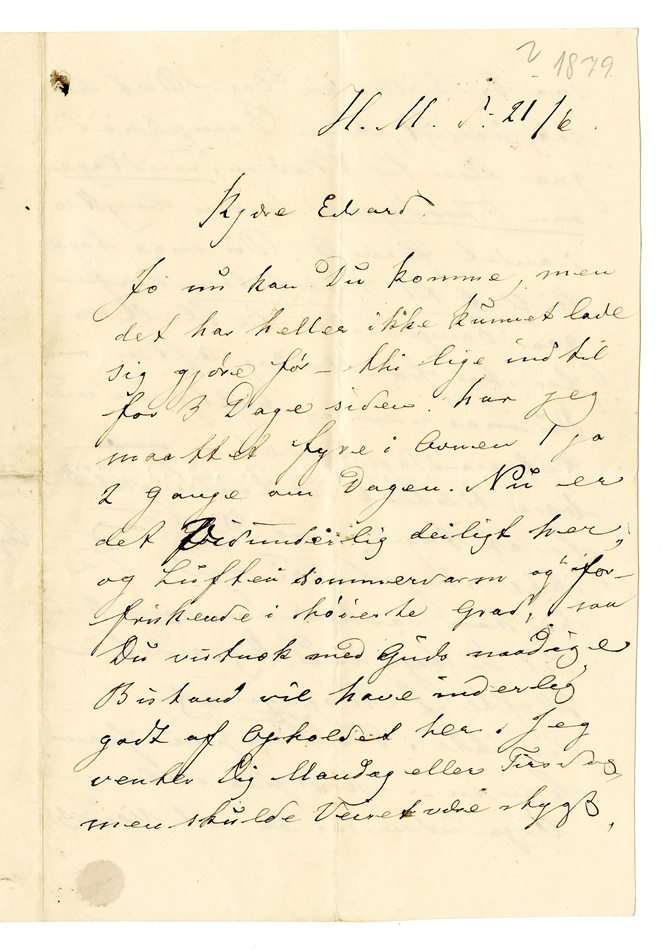 2 1879
H. M. d. 21/6.
Kjære Edvard.
Jo nu kan Du komme, men
det har heller ikke kunnet lade
sig gjöre för – thi lige indtil
for 3 Dage siden har jeg
maattet fyre i Ovnen 1 ja
2 Gange om Dagen. Nu er
det vidunderlig deiligt her,
og Luften sommervarm og for-
friskende i höieste Grad, saa
Du vistnok med Guds naadige
Bistand vil have inderlig
godt af Opholdet her. Jeg
venter Dig Mandag eller Tirsdag,
men skulde Veiret være stygt,